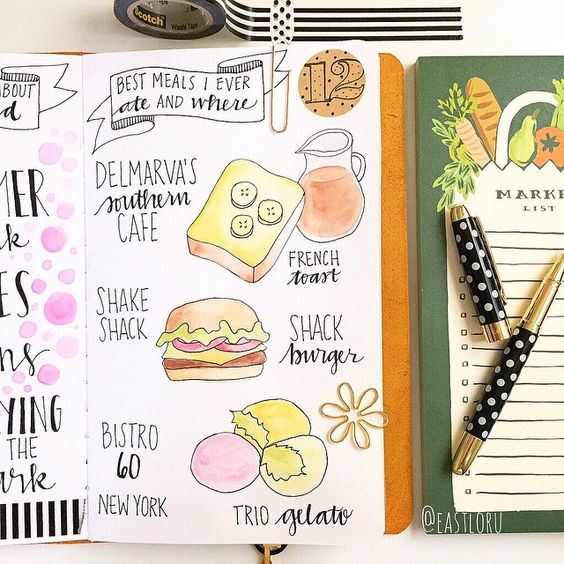 Scotch
Washi Tape
ABOUT
BEST MEALS I EVER
ate AND where
12
DELMARVA'S
southern
CAFE
FRENCH
toast
SHAKE
SHACK
SHACK
burger
BISTRO
60
NEW YORK
TRIO gelato
MARKE
LIST
YING
THE
@EASTLORU